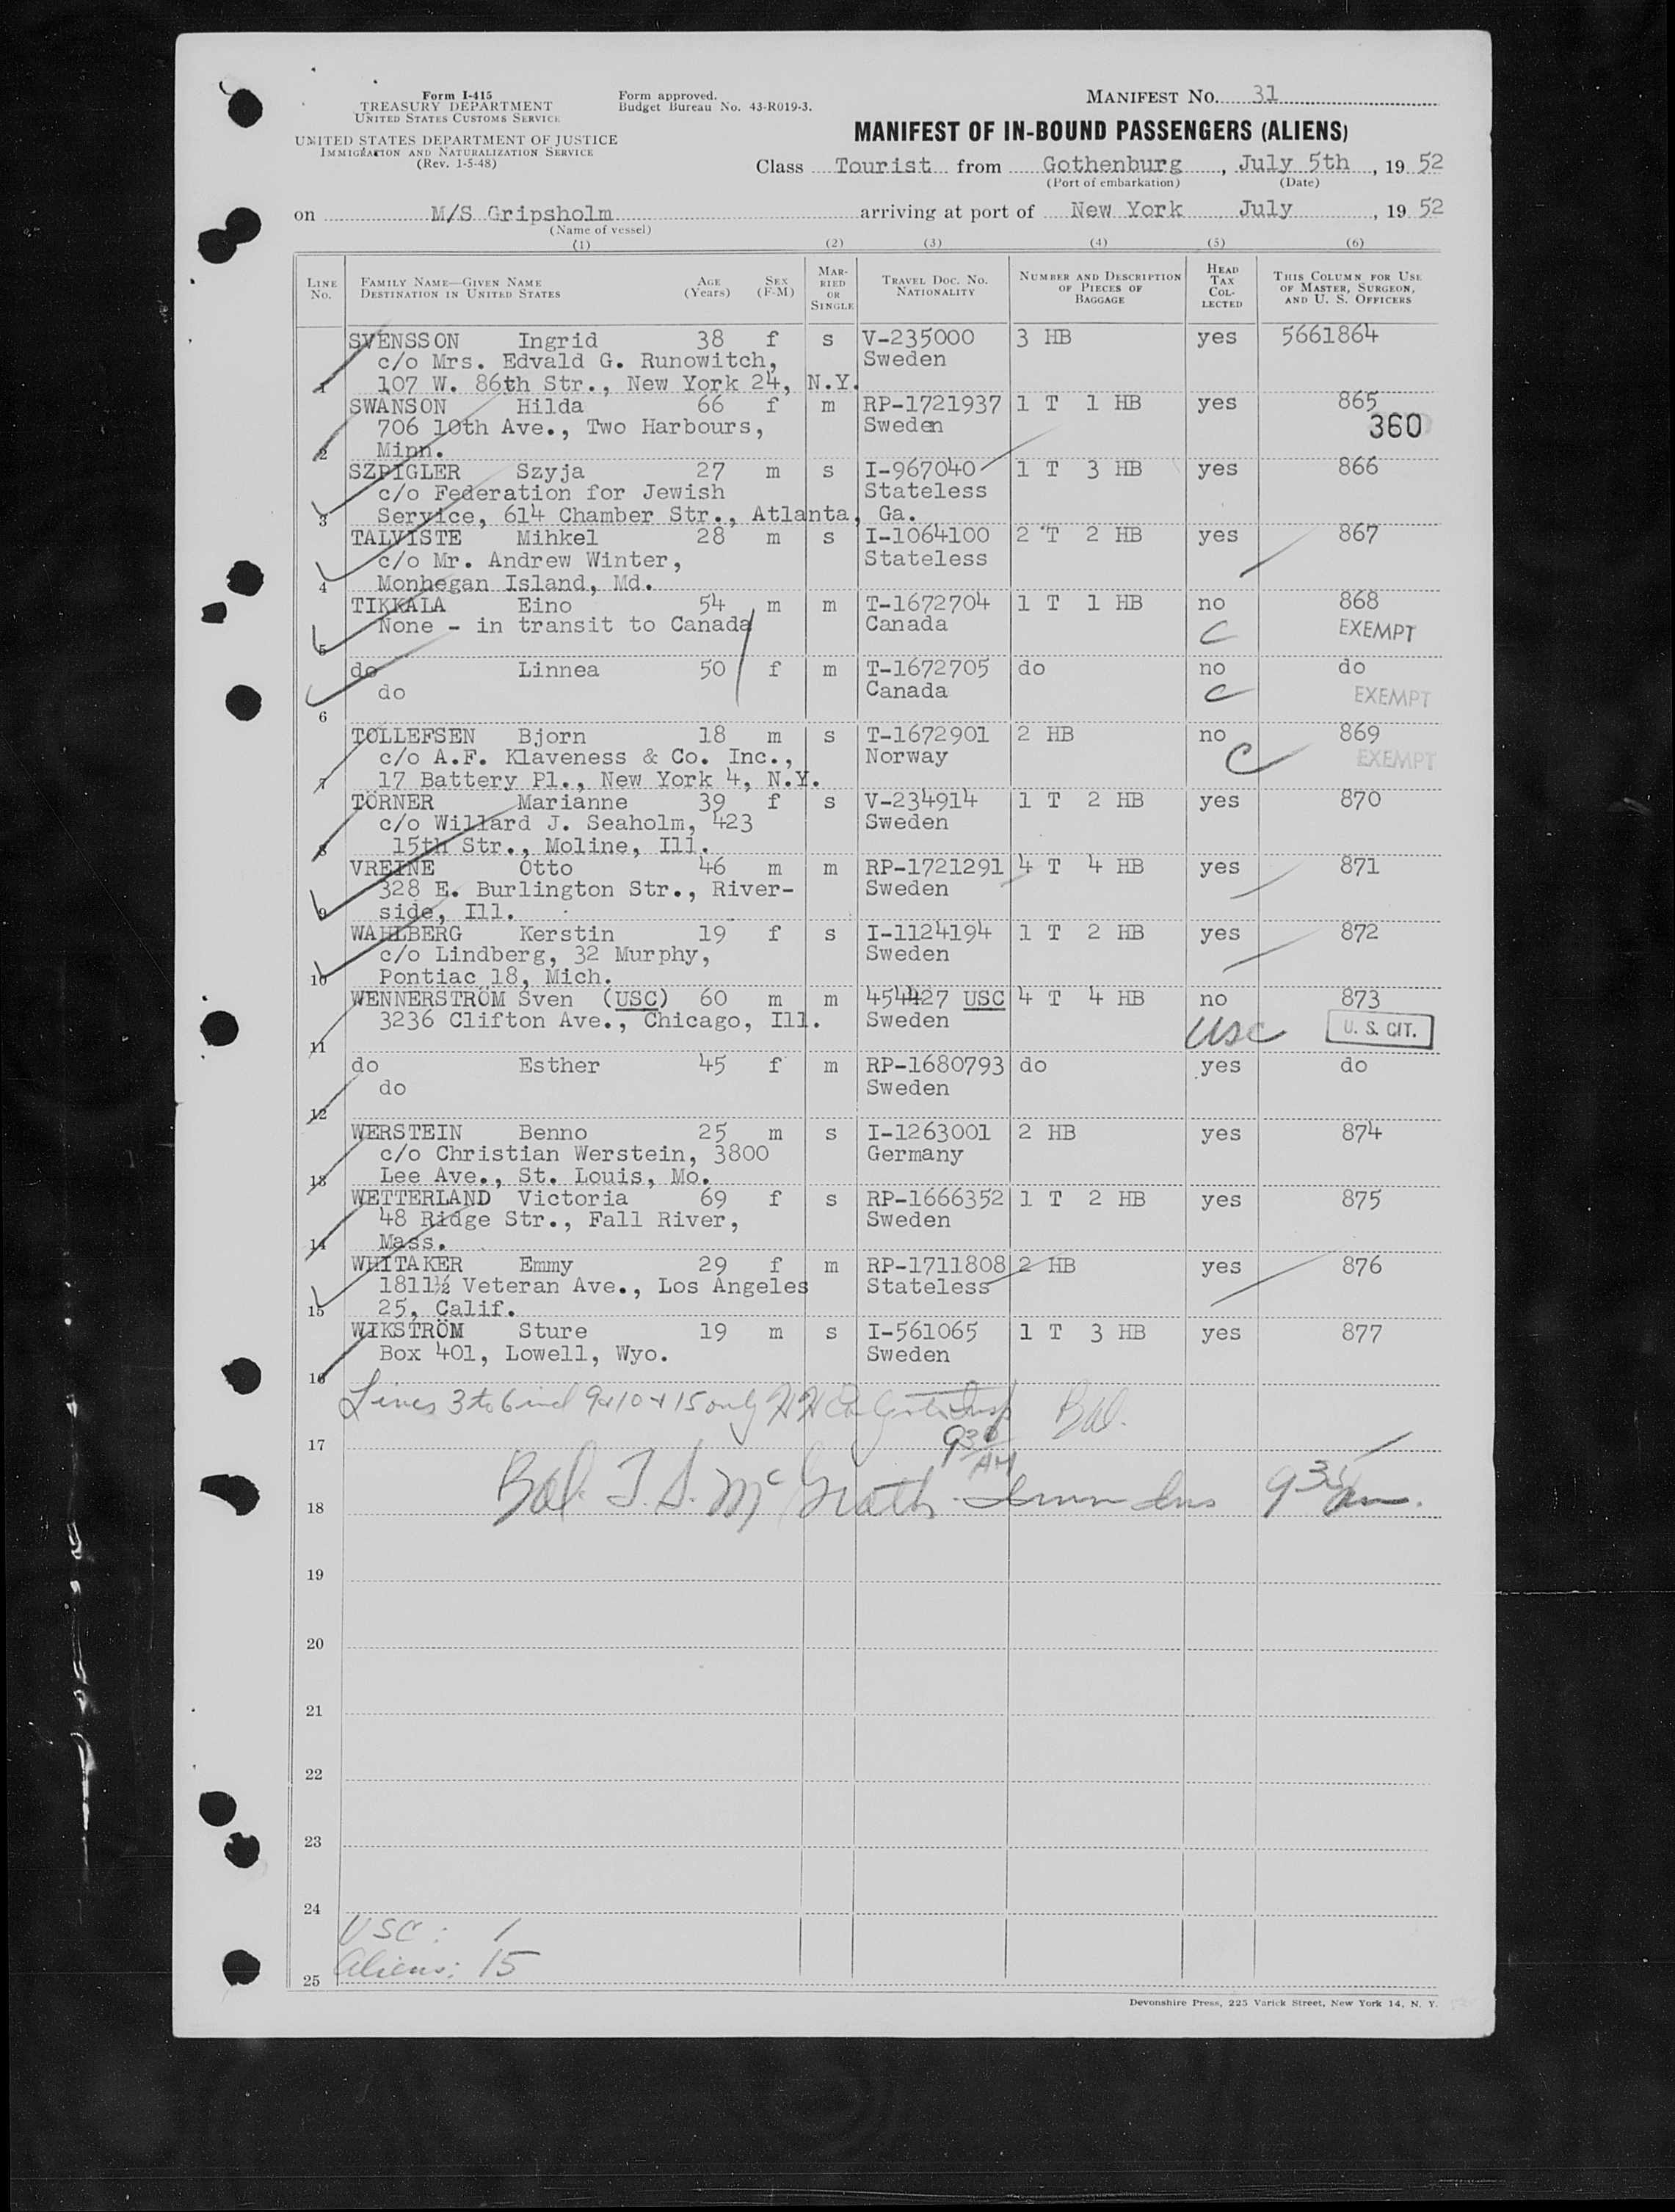 Form I-415
TREASURY DEPARTMENT
UNITED STATES CUSTOMS SERVICE
UNITED STATES DEPARTMENT OF JUSTICE
IMMIGRATION AND NATURALIZATION SERVICE
(Rev. 1-5-48)
Form approved.
Budget Bureau No. 43-R019-3.
MANIFEST NO. 31
MANIFEST OF IN-BOUND PASSENGERS (ALIENS)
Class Tourist from Gothenburg, July 5th, 19 52
(Port of embarkation) (Date)
on M/S Gripsholm arriving at port of New York July, 19 52
(Name of vessel)
(1) (2) (3) (4) (5) (6)
LINE NO. FAMILY NAME—GIVEN NAME DESTINATION IN UNITED STATES AGE (Years) SEX (F-M) MARRIED OR SINGLE TRAVEL DOC. NO. NATIONALITY NUMBER AND DESCRIPTION OF PIECES OF BAGGAGE HEAD TAX COLLECTED THIS COLUMN FOR USE OF MASTER, SURGEON, AND U. S. OFFICERS
SVENSSON Ingrid 38 f s V-235000 3 HB yes 5661864
c/o Mrs. Edvald G. Runowitch, Sweden
1 107 W. 86th Str., New York 24, N.Y.
SWANSON Hilda 66 f m RP-1721937 1 T 1 HB yes 865
706 10th Ave., Two Harbours, Sweden 360
2 Minn.
SZPIGLER Szyja 27 m s I-967040 1 T 3 HB yes 866
c/o Federation for Jewish Stateless
3 Service, 614 Chamber Str., Atlanta, Ga.
TALVISTE Mihkel 28 m s I-1064100 2 T 2 HB yes 867
c/o Mr. Andrew Winter, Stateless
4 Monhegan Island, Md.
TIKKALA Eino 54 m m T-1672704 1 T 1 HB no 868
None - in transit to Canada Canada C EXEMPT
5
do Linnea 50 f m T-1672705 do no do
do Canada C EXEMPT
6
TOLLEFSEN Bjorn 18 m s T-1672901 2 HB no 869
c/o A.F. Klaveness & Co. Inc., Norway C EXEMPT
7 17 Battery Pl., New York 4, N.Y.
TÖRNER Marianne 39 f s V-234914 1 T 2 HB yes 870
c/o Willard J. Seaholm, 423 Sweden
8 15th Str., Moline, Ill.
VREINE Otto 46 m m RP-1721291 4 T 4 HB yes 871
328 E. Burlington Str., River- Sweden
9 side, Ill.
WAHLBERG Kerstin 19 f s I-1124194 1 T 2 HB yes 872
c/o Lindberg, 32 Murphy, Sweden
10 Pontiac 18, Mich.
WENNERSTRÖM Sven (USC) 60 m m 454427 USC 4 T 4 HB no 873
3236 Clifton Ave., Chicago, Ill. Sweden USC U. S. CIT.
11
do Esther 45 f m RP-1680793 do yes do
do Sweden
12
WERSTEIN Benno 25 m s I-1263001 2 HB yes 874
c/o Christian Werstein, 3800 Germany
13 Lee Ave., St. Louis, Mo.
WETTERLAND Victoria 69 f s RP-1666352 1 T 2 HB yes 875
48 Ridge Str., Fall River, Sweden
14 Mass.
WHITAKER Emmy 29 f m RP-1711808 2 HB yes 876
1811½ Veteran Ave., Los Angeles Stateless
15 25, Calif.
WIKSTRÖM Sture 19 m s I-561065 1 T 3 HB yes 877
Box 401, Lowell, Wyo. Sweden
16
Lines 3 to 6 incl 9+10+15 only Bal.
17 930 AM
18 Bal. T. S. McGrath Imm Ins 935 am.
19
20
21
22
23
24
USC: 1
25 Aliens: 15
Devonshire Press, 225 Varick Street, New York 14, N. Y.